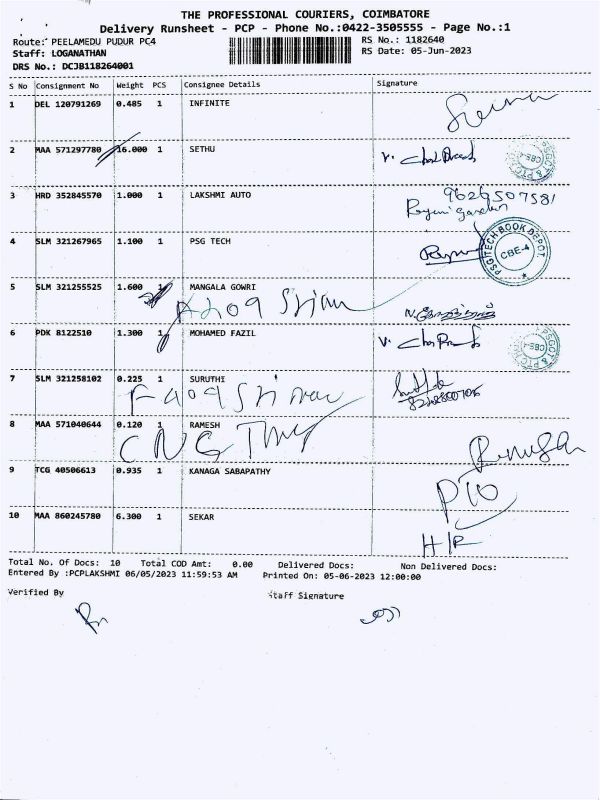 THE PROFESSIONAL COURIERS, COIMBATORE
Delivery Runsheet - PCP - Phone No.:0422-3505555 - Page No.:1
Route: PEELAMEDU PUDUR PC4 RS No.: 1182640
Staff: LOGANATHAN RS Date: 05-Jun-2023
DRS No.: DCJB118264001
S No Consignment No Weight PCS Consignee Details Signature
1 DEL 120791269 0.485 1 INFINITE
2 MAA 571297780 16.000 1 SETHU
PSGCT & PTC CBE-4
3 HRD 352845570 1.000 1 LAKSHMI AUTO 9629507581
4 SLM 321267965 1.100 1 PSG TECH
PSG TECH BOOK DEPOT CBE-4
5 SLM 321255525 1.600 1 MANGALA GOWRI
6 PDK 8122510 1.300 1 MOHAMED FAZIL
PSGCT & PTC CBE-4
7 SLM 321258102 0.225 1 SURUTHI
8 MAA 571040644 0.120 1 RAMESH
9 TCG 40506613 0.935 1 KANAGA SABAPATHY
10 MAA 860245780 6.300 1 SEKAR
Total No. Of Docs: 10 Total COD Amt: 0.00 Delivered Docs: Non Delivered Docs:
Entered By :PCPLAKSHMI 06/05/2023 11:59:53 AM Printed On: 05-06-2023 12:00:00
Verified By Staff Signature